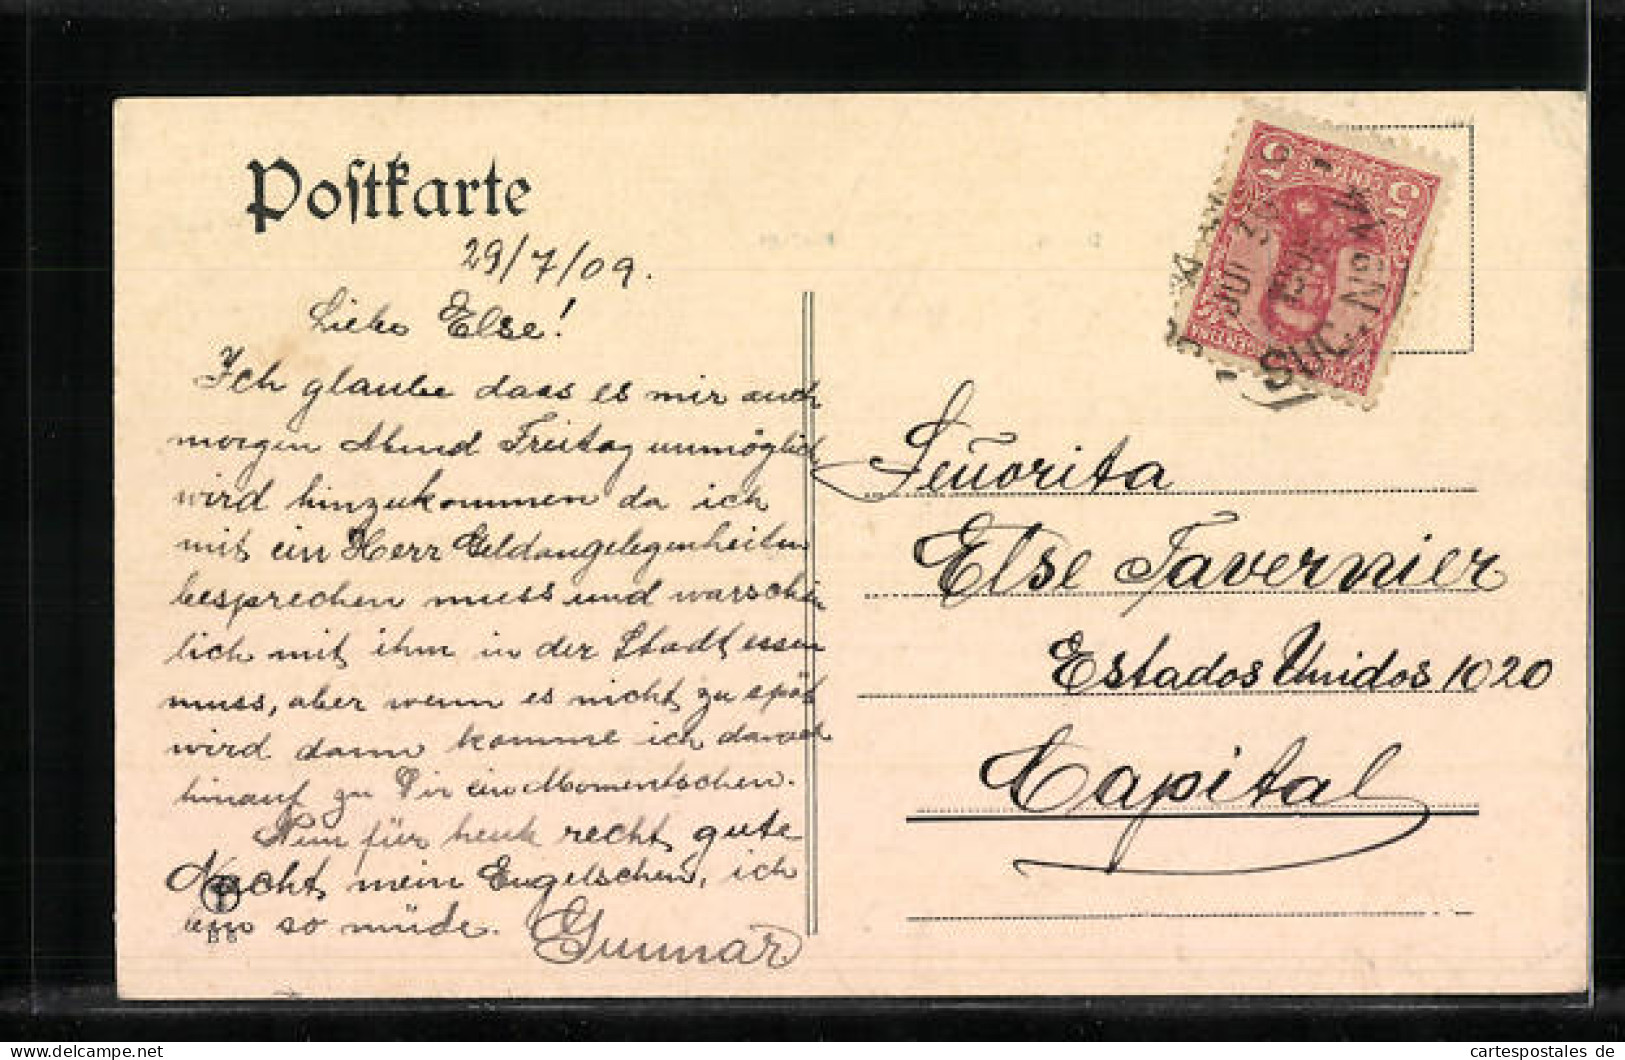 Postkarte
29/7/09.
Liebe Else!
Ich glaube dass es mir auch
morgen Abend Freitag unmöglich
wird hinzukommen da ich
mit ein Herr Geldangelegenheiten
besprechen muss und warschein
lich mit ihm in der Stadt essen
muss, aber wenn es nicht zu spät
wird dann komme ich danach
hinauf zu Dir ein Momentschen.
Nun für heute recht gute
Nacht, mein Engelschen, ich
bin so müde. Gunnar
B 6
5 CENTAVOS 5
JUL
SUC. N
Señorita
Else Tavernier
Estados Unidos 1020
Capital
cartespostales de